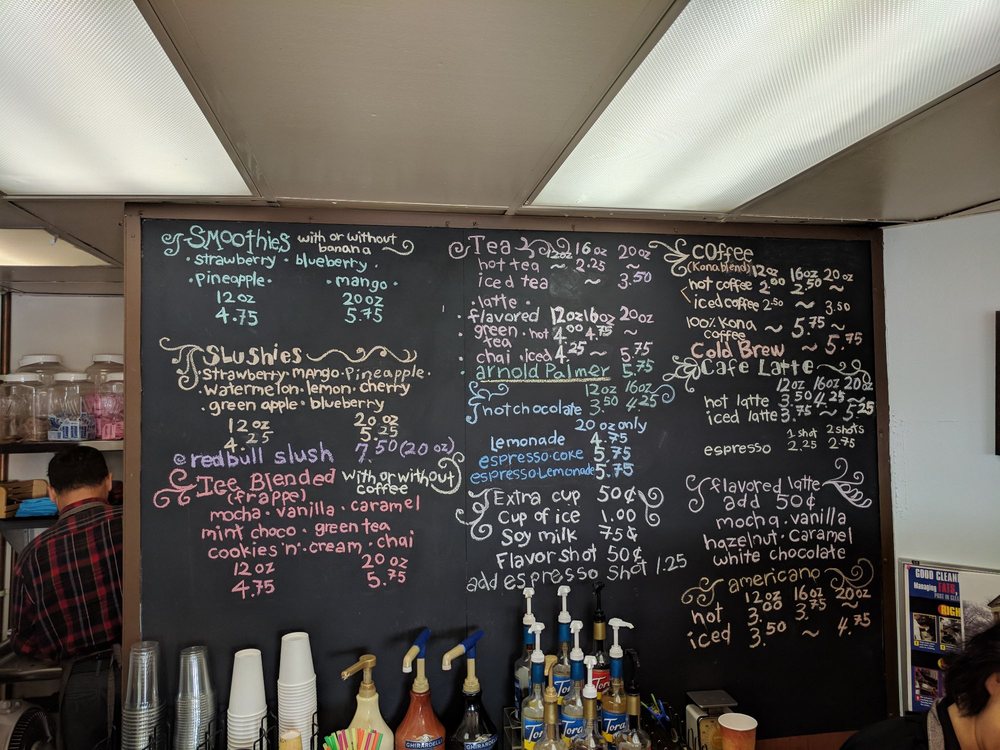 Smoothies with or without banana
• strawberry • blueberry •
• pineapple • • mango •
12oz 20oz
4.75 5.75
Slushies
strawberry • mango • pineapple •
• watermelon • lemon • cherry
• green apple • blueberry
12oz 20oz
4.25 5.25
redbull slush 7.50 (20oz)
Ice Blended with or without coffee
(frappe)
mocha • vanilla • caramel
mint choco • green tea
cookies 'n' cream • chai
12oz 20oz
4.75 5.75
Tea 12oz 16oz 20oz
hot tea ~ 2.25 ~
iced tea ~ 3.50
• latte •
• flavored 12oz 16oz 20oz
• green tea • hot 4.00 4.75 ~
• chai • iced 4.25 ~ 5.75
arnold Palmer 5.75
12oz 16oz
hot chocolate 3.50 4.25
20oz only
Lemonade 4.75
espresso•coke 5.75
espresso•Lemonade 5.75
Extra cup 50¢
Cup of ice 1.00
Soy milk 75¢
Flavor shot 50¢
add espresso shot 1.25
coffee
(Kona blend) 12oz 16oz 20oz
hot coffee 2.00 2.50 ~
iced coffee 2.50 ~ 3.50
100% Kona coffee ~ 5.75 ~
Cold Brew ~ 5.75
Cafe Latte
12oz 16oz 20oz
hot latte 3.50 4.25 ~
iced latte 3.75 ~ 5.25
1 shot 2 shots
espresso 2.25 2.75
flavored latte
add 50¢
mocha • vanilla
hazelnut • caramel
white chocolate
americano
12oz 16oz 20oz
hot 3.00 3.75 ~
iced 3.50 ~ 4.75
GOOD CLEAN
Managing
RIGH
GHIRARDELLI
GHIRARDELLI
Tora
Tora
Tora
Tora